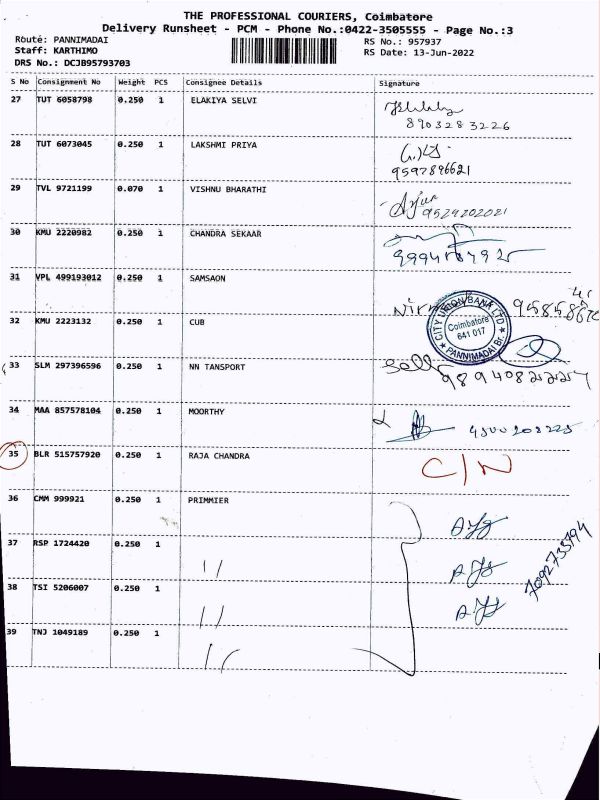 THE PROFESSIONAL COURIERS, Coimbatore
Delivery Runsheet - PCM - Phone No.:0422-3505555 - Page No.:3
Route: PANNIMADAI
RS No.: 957937
Staff: KARTHIMO
RS Date: 13-Jun-2022
DRS No.: DCJB95793703
S No Consignment No Weight PCS Consignee Details Signature
27 TUT 6058798 0.250 1 ELAKIYA SELVI
8903283226
28 TUT 6073045 0.250 1 LAKSHMI PRIYA
9597896621
29 TVL 9721199 0.070 1 VISHNU BHARATHI
Arjun
9529202021
30 KMU 2220982 0.250 1 CHANDRA SEKAAR
31 VPL 499193012 0.250 1 SAMSAON
CITY UNION BANK LTD
Coimbatore
641 017
PANNIMADAI Br.
32 KMU 2223132 0.250 1 CUB
33 SLM 297396596 0.250 1 NN TANSPORT
34 MAA 857578104 0.250 1 MOORTHY
35 BLR 515757920 0.250 1 RAJA CHANDRA
C/N
36 CMM 999921 0.250 1 PRIMMIER
37 RSP 1724420 0.250 1 //
38 TSI 5206007 0.250 1 //
7092735194
39 TNJ 1049189 0.250 1 //